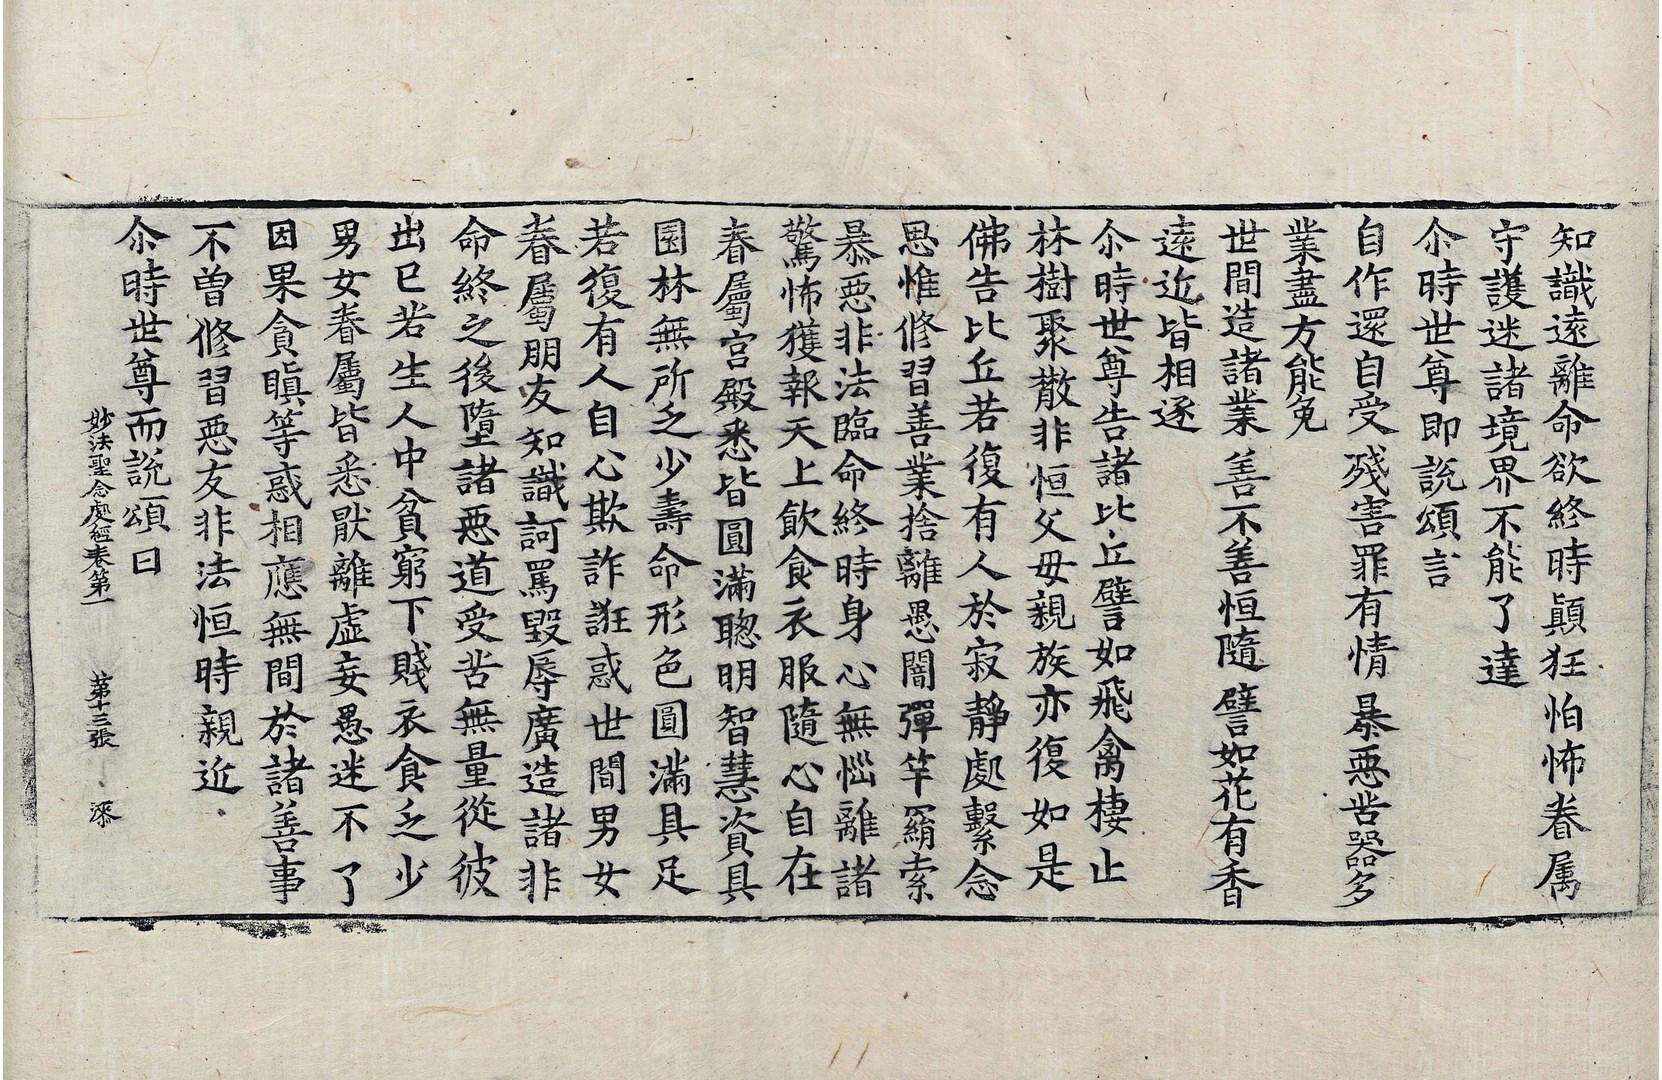 知識遠離命欲終時顛狂怕怖眷属
守護迷諸境界不能了達
尒時世尊即說頌言
自作還自受 殘害罪有情 暴惡苦器多
業盡方能免
世間造諸業 善不善恒隨 譬如花有香
遠近皆相逐
尒時世尊告諸比丘譬如飛禽棲止
林樹聚散非恒父母親族亦復如是
佛告比丘若復有人於寂靜處繫念
思惟修習善業捨離愚闇彈竿羂索
暴惡非法臨命終時身心無惱離諸
驚怖獲報天上飲食衣服隨心自在
眷屬宮殿悉皆圓滿聦明智慧資具
園林無所乏少壽命形色圓滿具足
若復有人自心欺詐誑惑世間男女
眷屬朋友知識訶罵毀辱廣造諸非
命終之後墮諸惡道受苦無量從彼
出已若生人中貧窮下賤衣食乏少
男女眷屬皆悉猒離虛妄愚迷不了
因果貪瞋等惑相應無間於諸善事
不曽修習惡友非法恒時親近
尒時世尊而說頌曰
妙法聖念處經卷第一 第十三張 漆